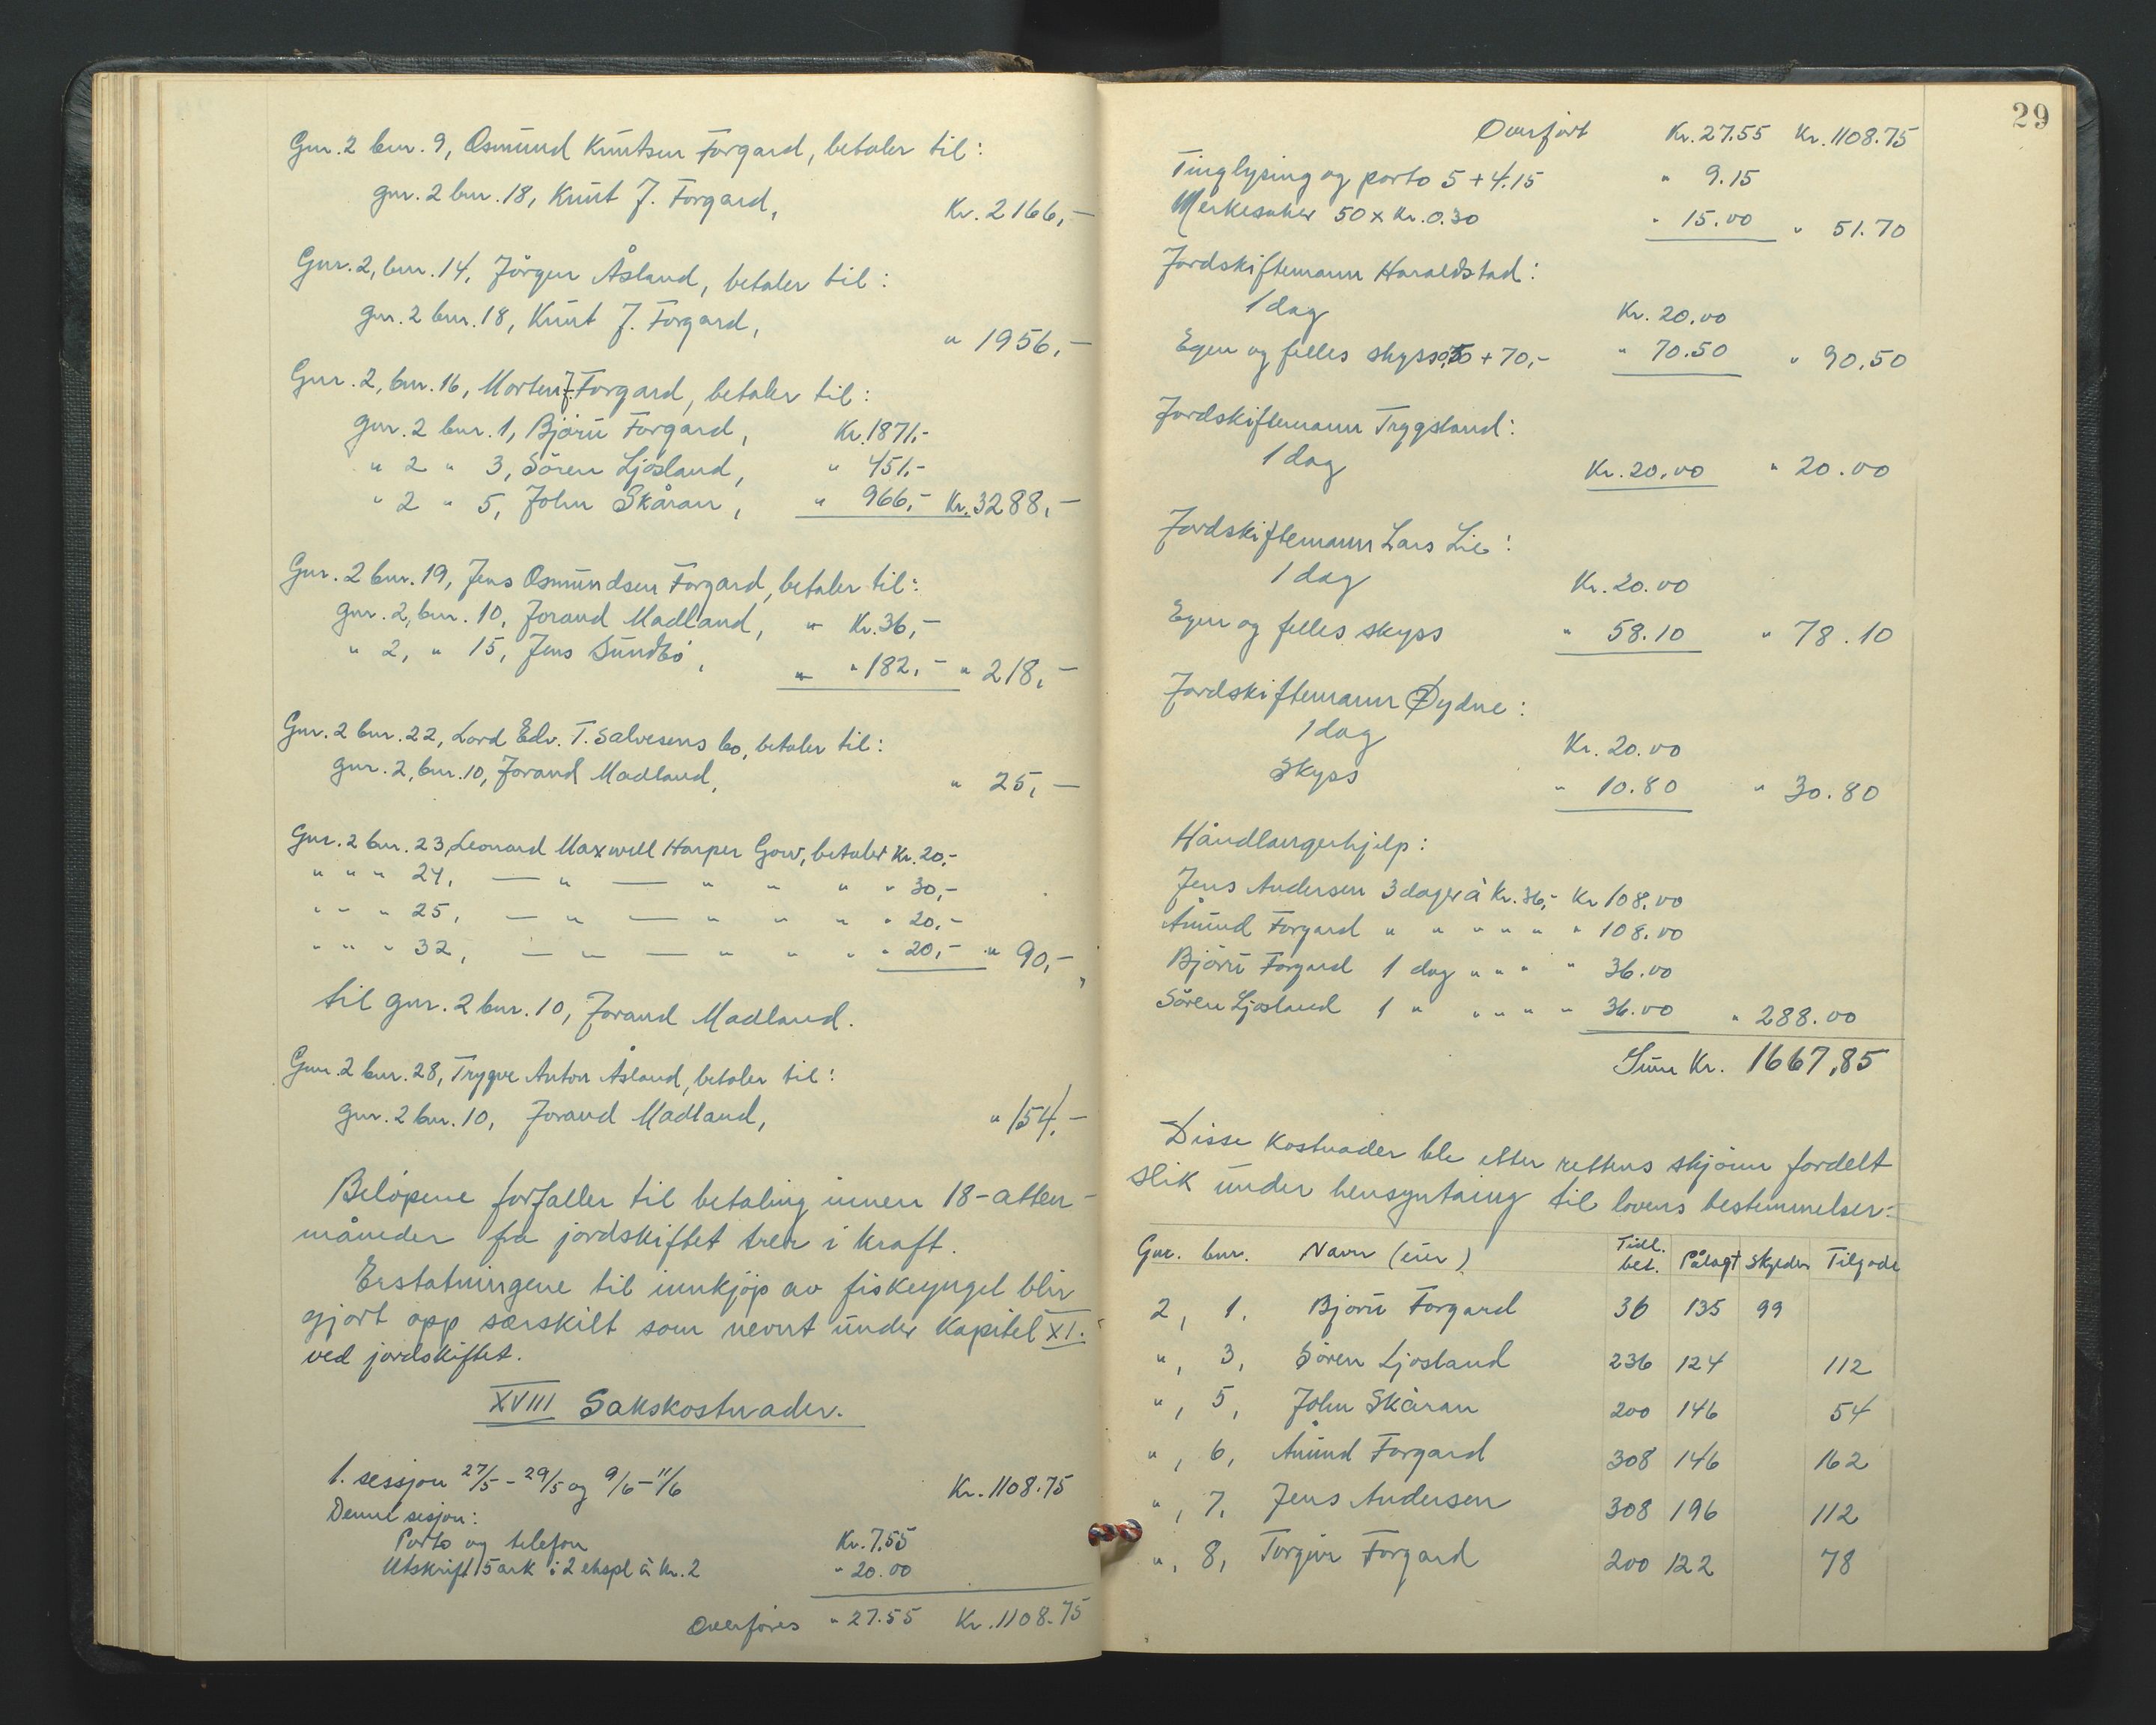 Gnr. 2 bnr. 9, Osmund Knutsen Forgard, betaler til:
gnr. 2 bnr. 18, Knut J. Forgard, Kr. 2166,-
Gnr. 2, bnr. 14, Jörgen Åsland, betaler til:
gnr. 2 bnr. 18, Knut J. Forgard, " 1956,-
Gnr. 2, bnr. 16, Morten J. Forgard, betaler til:
gnr. 2 bnr. 1, Björn Forgard, Kr. 1871,-
" 2 " 3, Sören Ljosland, " 451,-
" 2 " 5, John Skåran, " 966,- Kr. 3288,-
Gnr. 2 bnr. 19, Jens Osmundsen Forgard, betaler til:
gnr. 2, bnr. 10, Jorand Madland, " Kr. 36,-
" 2, " 15, Jens Sundbö, " " 182,- " 218,-
Gnr. 2 bnr. 22, Lord Edv. T. Salvesens bo, betaler til:
gnr. 2, bnr. 10, Jorand Madland, " 25,-
Gnr. 2 bnr. 23, Leonard Maxwell Harper Gow, betaler Kr. 20,-
" " " 24, — " — " " " " 30,-
" " " 25, — " — " " " " 20,-
" " " 32, — " — " " " " 20,- " 90,-
til gnr. 2 bnr. 10, Jorand Madland.
Gnr. 2 bnr. 28, Trygve Anton Åsland, betaler til:
gnr. 2 bnr. 10, Jorand Madland, " 154,-
Belöpene forfaller til betaling innen 18-atten-
måneder fra jordskiftet trer i kraft.
Erstatningene til innkjöp av fiskeyngel blir
gjort opp særskilt som nevnt under Kapitel XI.
ved jordskiftet.
XVIII Sakskostnader.
1. sessjon 27/5 - 29/5 og 9/6 - 11/6 Kr. 1108.75
Denne sesjon:
Porto og telefon Kr. 7.55
Utskrift 5 ark i 2 ekspl à kr. 2 " 20.00
Overföres " 27.55 Kr. 1108.75
29
Overfört Kr. 27.55 Kr. 1108.75
Tinglysing og porto 5 + 4.15 " 9.15
Merkesaker 50 x Kr. 0.30 " 15.00 " 51.70
Jordskiftemann Haraldstad:
1 dag Kr. 20.00
Egen og felles skyss 0,50 + 70,- " 70.50 " 90,50
Jordskiftemann Trygsland:
1 dag Kr. 20.00 " 20.00
Jordskiftemann Lars Lie:
1 dag Kr. 20.00
Egen og felles skyss " 58.10 " 78.10
Jordskiftemann Öydne:
1 dag Kr. 20.00
Skyss " 10.80 " 30.80
Håndlangerhjelp:
Jens Andersen 3 dager à Kr. 36,- Kr 108.00
Ånund Forgard " " " " " " 108.00
Björn Forgard 1 dag " " " " 36.00
Sören Ljosland 1 " " " " " 36.00 " 288.00
Sum Kr. 1667,85
Disse kostnader ble etter rettens skjönn fordelt
slik under hensyntaing til lovens bestemmelser:
Gnr. bnr. Navn (eier) Tidl. bet. Pålagt Skylder Tilgode
2, 1. Björn Forgard 36 135 99
", 3, Sören Ljosland 236 124 112
", 5, John Skåran 200 146 54
", 6, Ånund Forgard 308 146 162
", 7. Jens Andersen 308 196 112
", 8, Torgeir Forgard 200 122 78